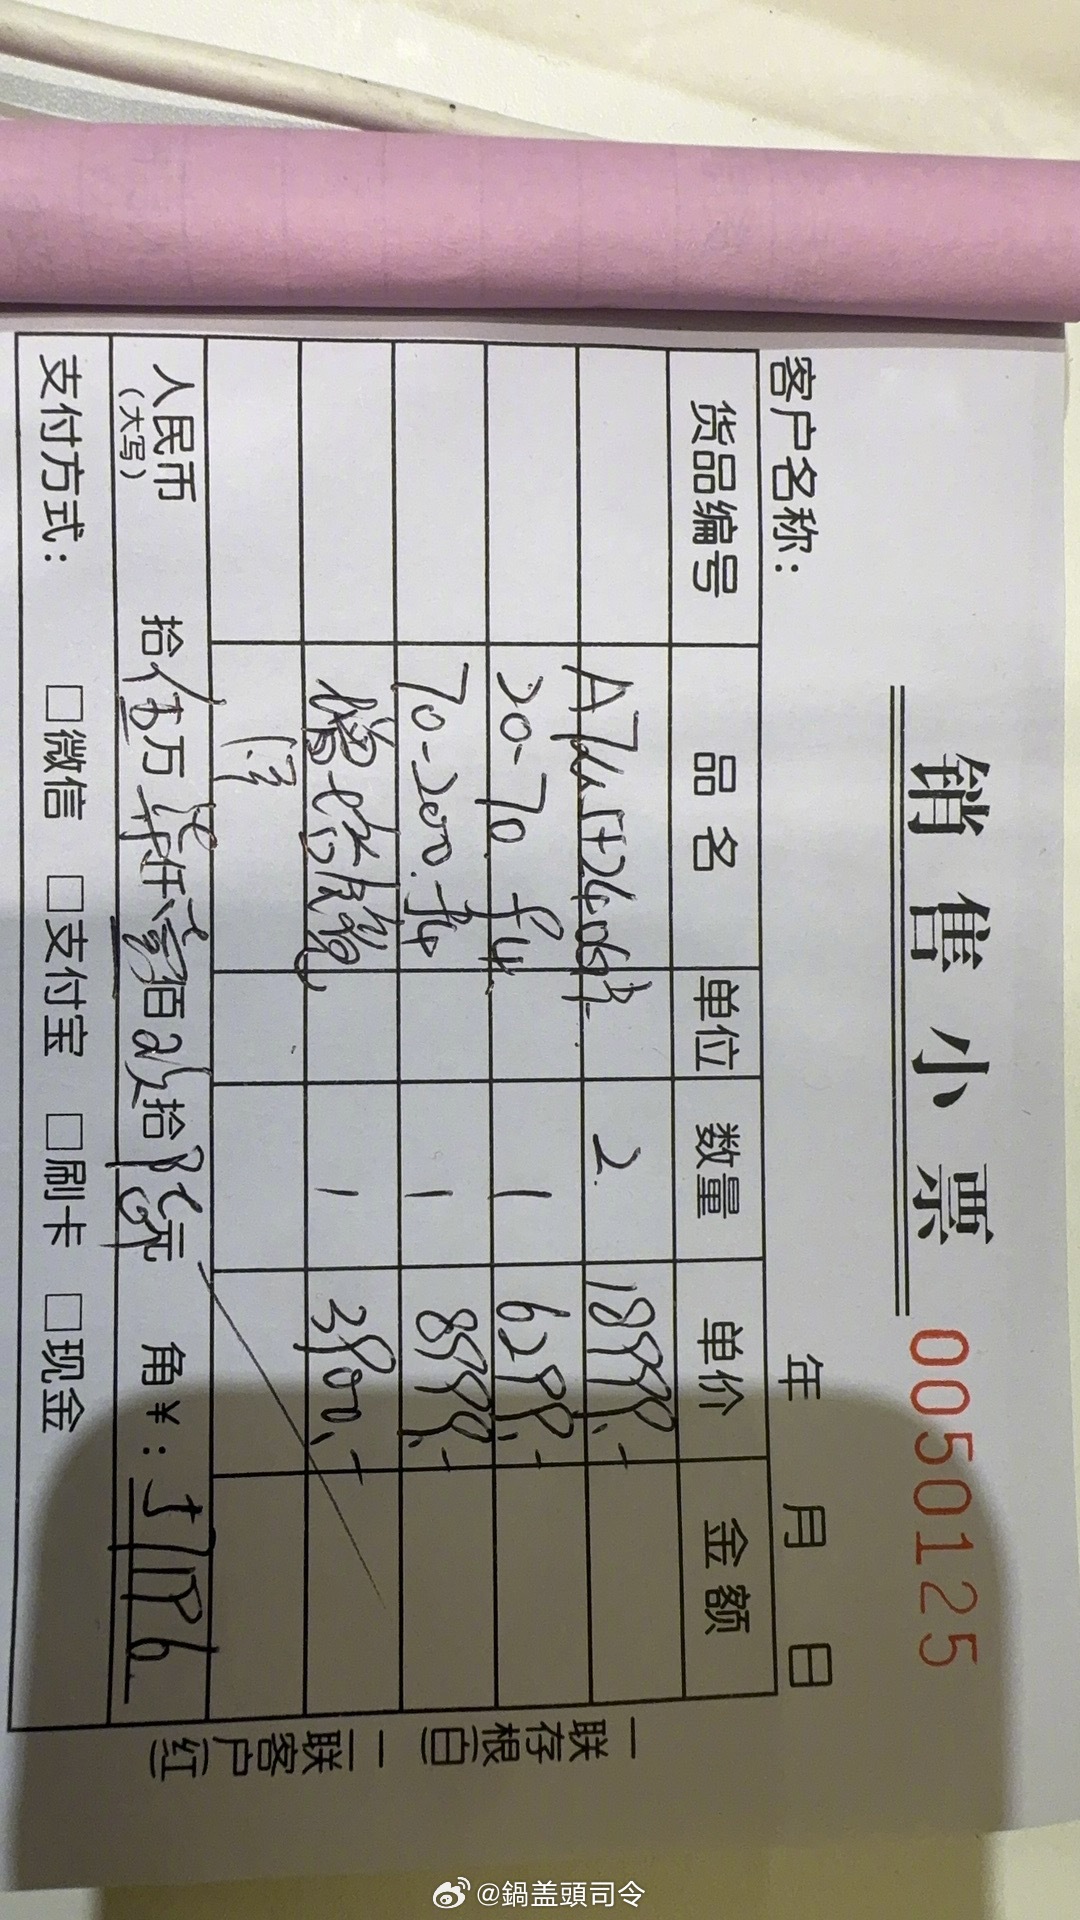 销售小票
0050125
客户名称： 年 月 日
货品编号 品名 单位 数量 单价 金额
2 18999.-
20-70 f4 1 6299.-
70-200.f4 1 8999.-
1 3900.-
人民币（大写） 拾伍万柒仟壹佰玖拾陆元 角￥：57196
支付方式： □微信 □支付宝 □刷卡 □现金
一联存根(白) 一联客户(红)
@鍋盖頭司令